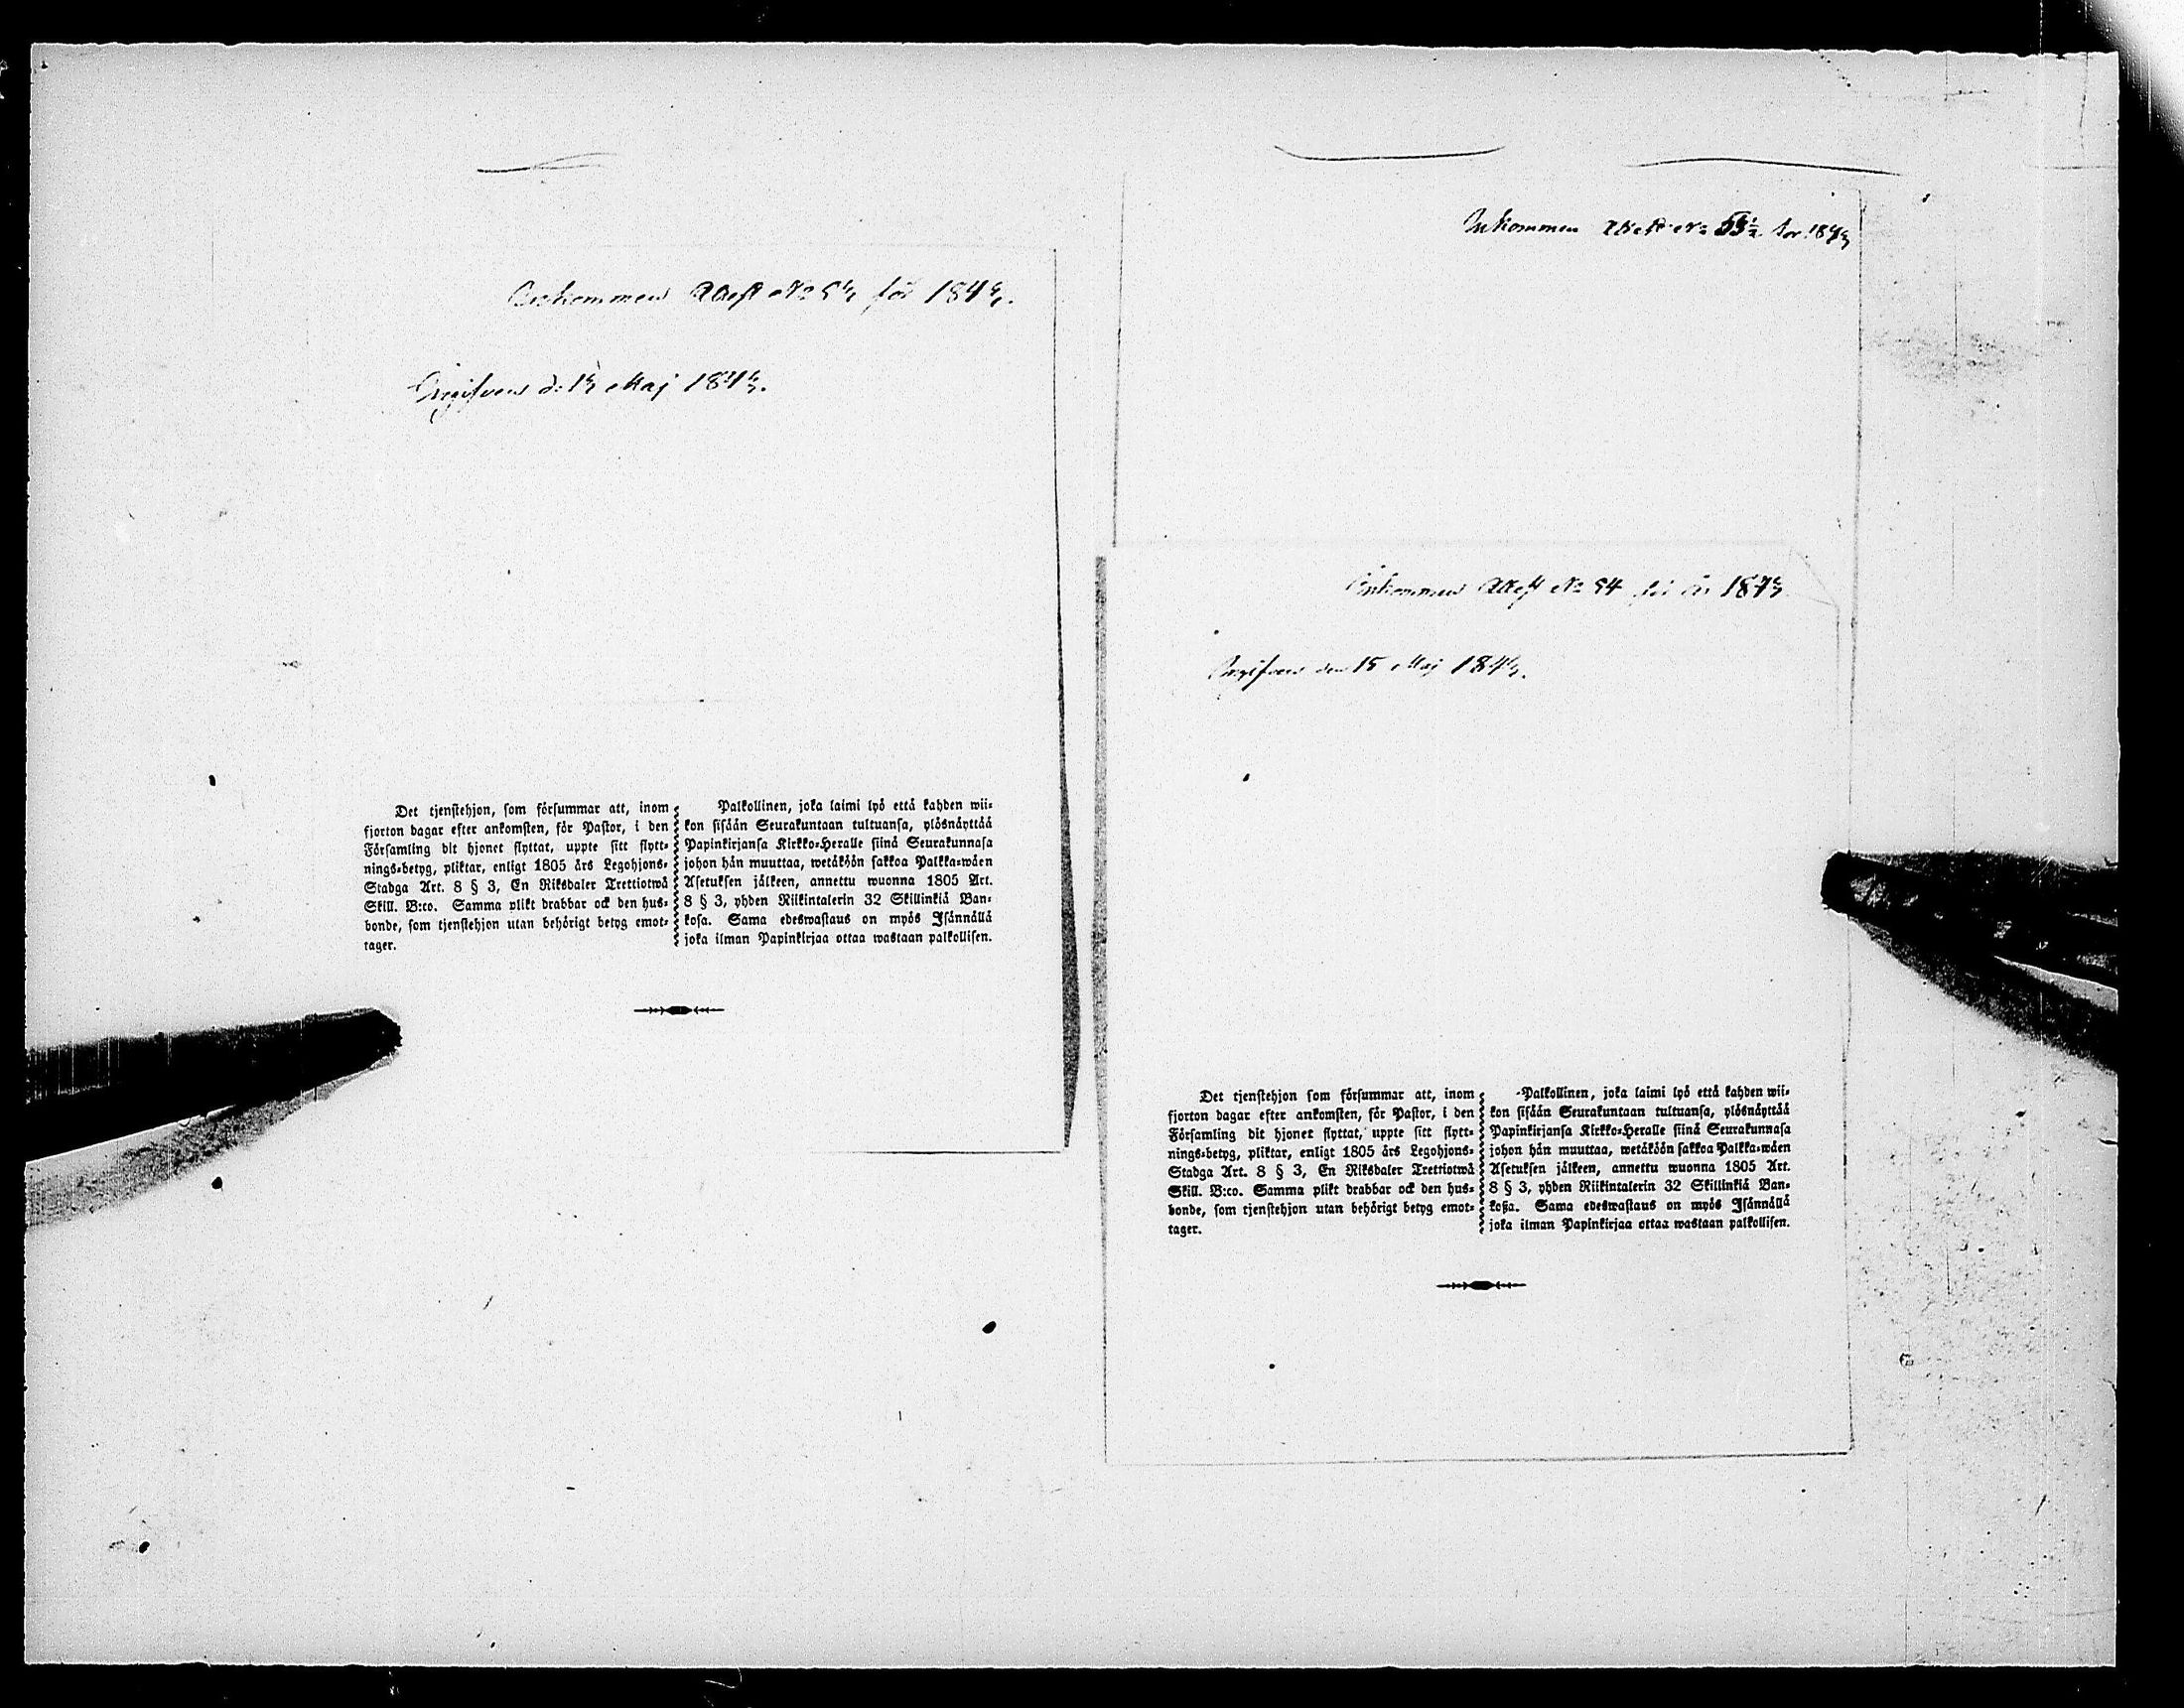 Inkommen Attest No 53 för 1843.
Uppvisad d. 15 Maj 1843.
Det tjenstehjon, som försummar att, inom
fjorton dagar efter ankomsten, för Pastor, i den
Församling dit hjonet flyttat, uppte sitt flytt=
nings=betyg, pliktar, enligt 1805 års Legohjons=
Stadga Art. 8 § 3, En Riksdaler Trettiotwå
Skill. B:co. Samma plikt drabbar ock den hus=
bonde, som tjenstehjon utan behörigt betyg emot=
tager.
Palkollinen, joka laimi lyö että kahden wii=
kon sisään Seurakuntaan tultuansa, ylösnäyttää
Papinkirjansa Kirkko=Heralle siinä Seurakunnasa
johon hän muuttaa, wetäköön sakkoa Palkka=wäen
Asetuksen jälkeen, annettu wuonna 1805 Art.
8 § 3, yhden Riikintalerin 32 Skillinkiä Ban=
kosa. Sama edeswastaus on myös Isännällä
joka ilman Papinkirjaa ottaa wastaan palkollisen.
Inkommen Attest No 53½ för 1843
Inkommen Attest No 54 för år 1843
den 15 Maj 1843.
Det tjenstehjon som försummar att, inom
fjorton dagar efter ankomsten, för Pastor, i den
Församling dit hjonet flyttat, uppte sitt flytt=
nings=betyg, pliktar, enligt 1805 års Legohjons=
Stadga Art. 8 § 3, En Riksdaler Trettiotwå
Skill. B:co. Samma plikt drabbar ock den hus=
bonde, som tjenstehjon utan behörigt betyg emot=
tager.
Palkollinen, joka laimi lyö että kahden wii=
kon sisään Seurakuntaan tultuansa, ylösnäyttää
Papinkirjansa Kirkko=Heralle siinä Seurakunnasa
johon hän muuttaa, wetäköön sakkoa Palkka=wäen
Asetuksen jälkeen, annettu wuonna 1805 Art.
8 § 3, yhden Riikintalerin 32 Skillinkiä Ban=
koßa. Sama edeswastaus on myös Isännällä
joka ilman Papinkirjaa ottaa wastaan palkollisen.